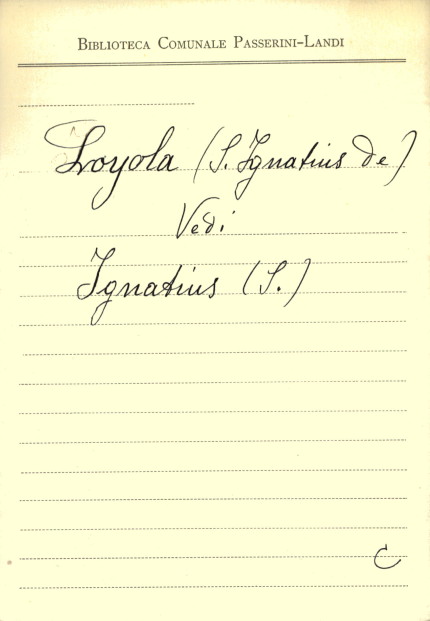 Biblioteca Comunale Passerini-Landi
Loyola (S. Ignatius de)
Vedi
Ignatius (S.)
C